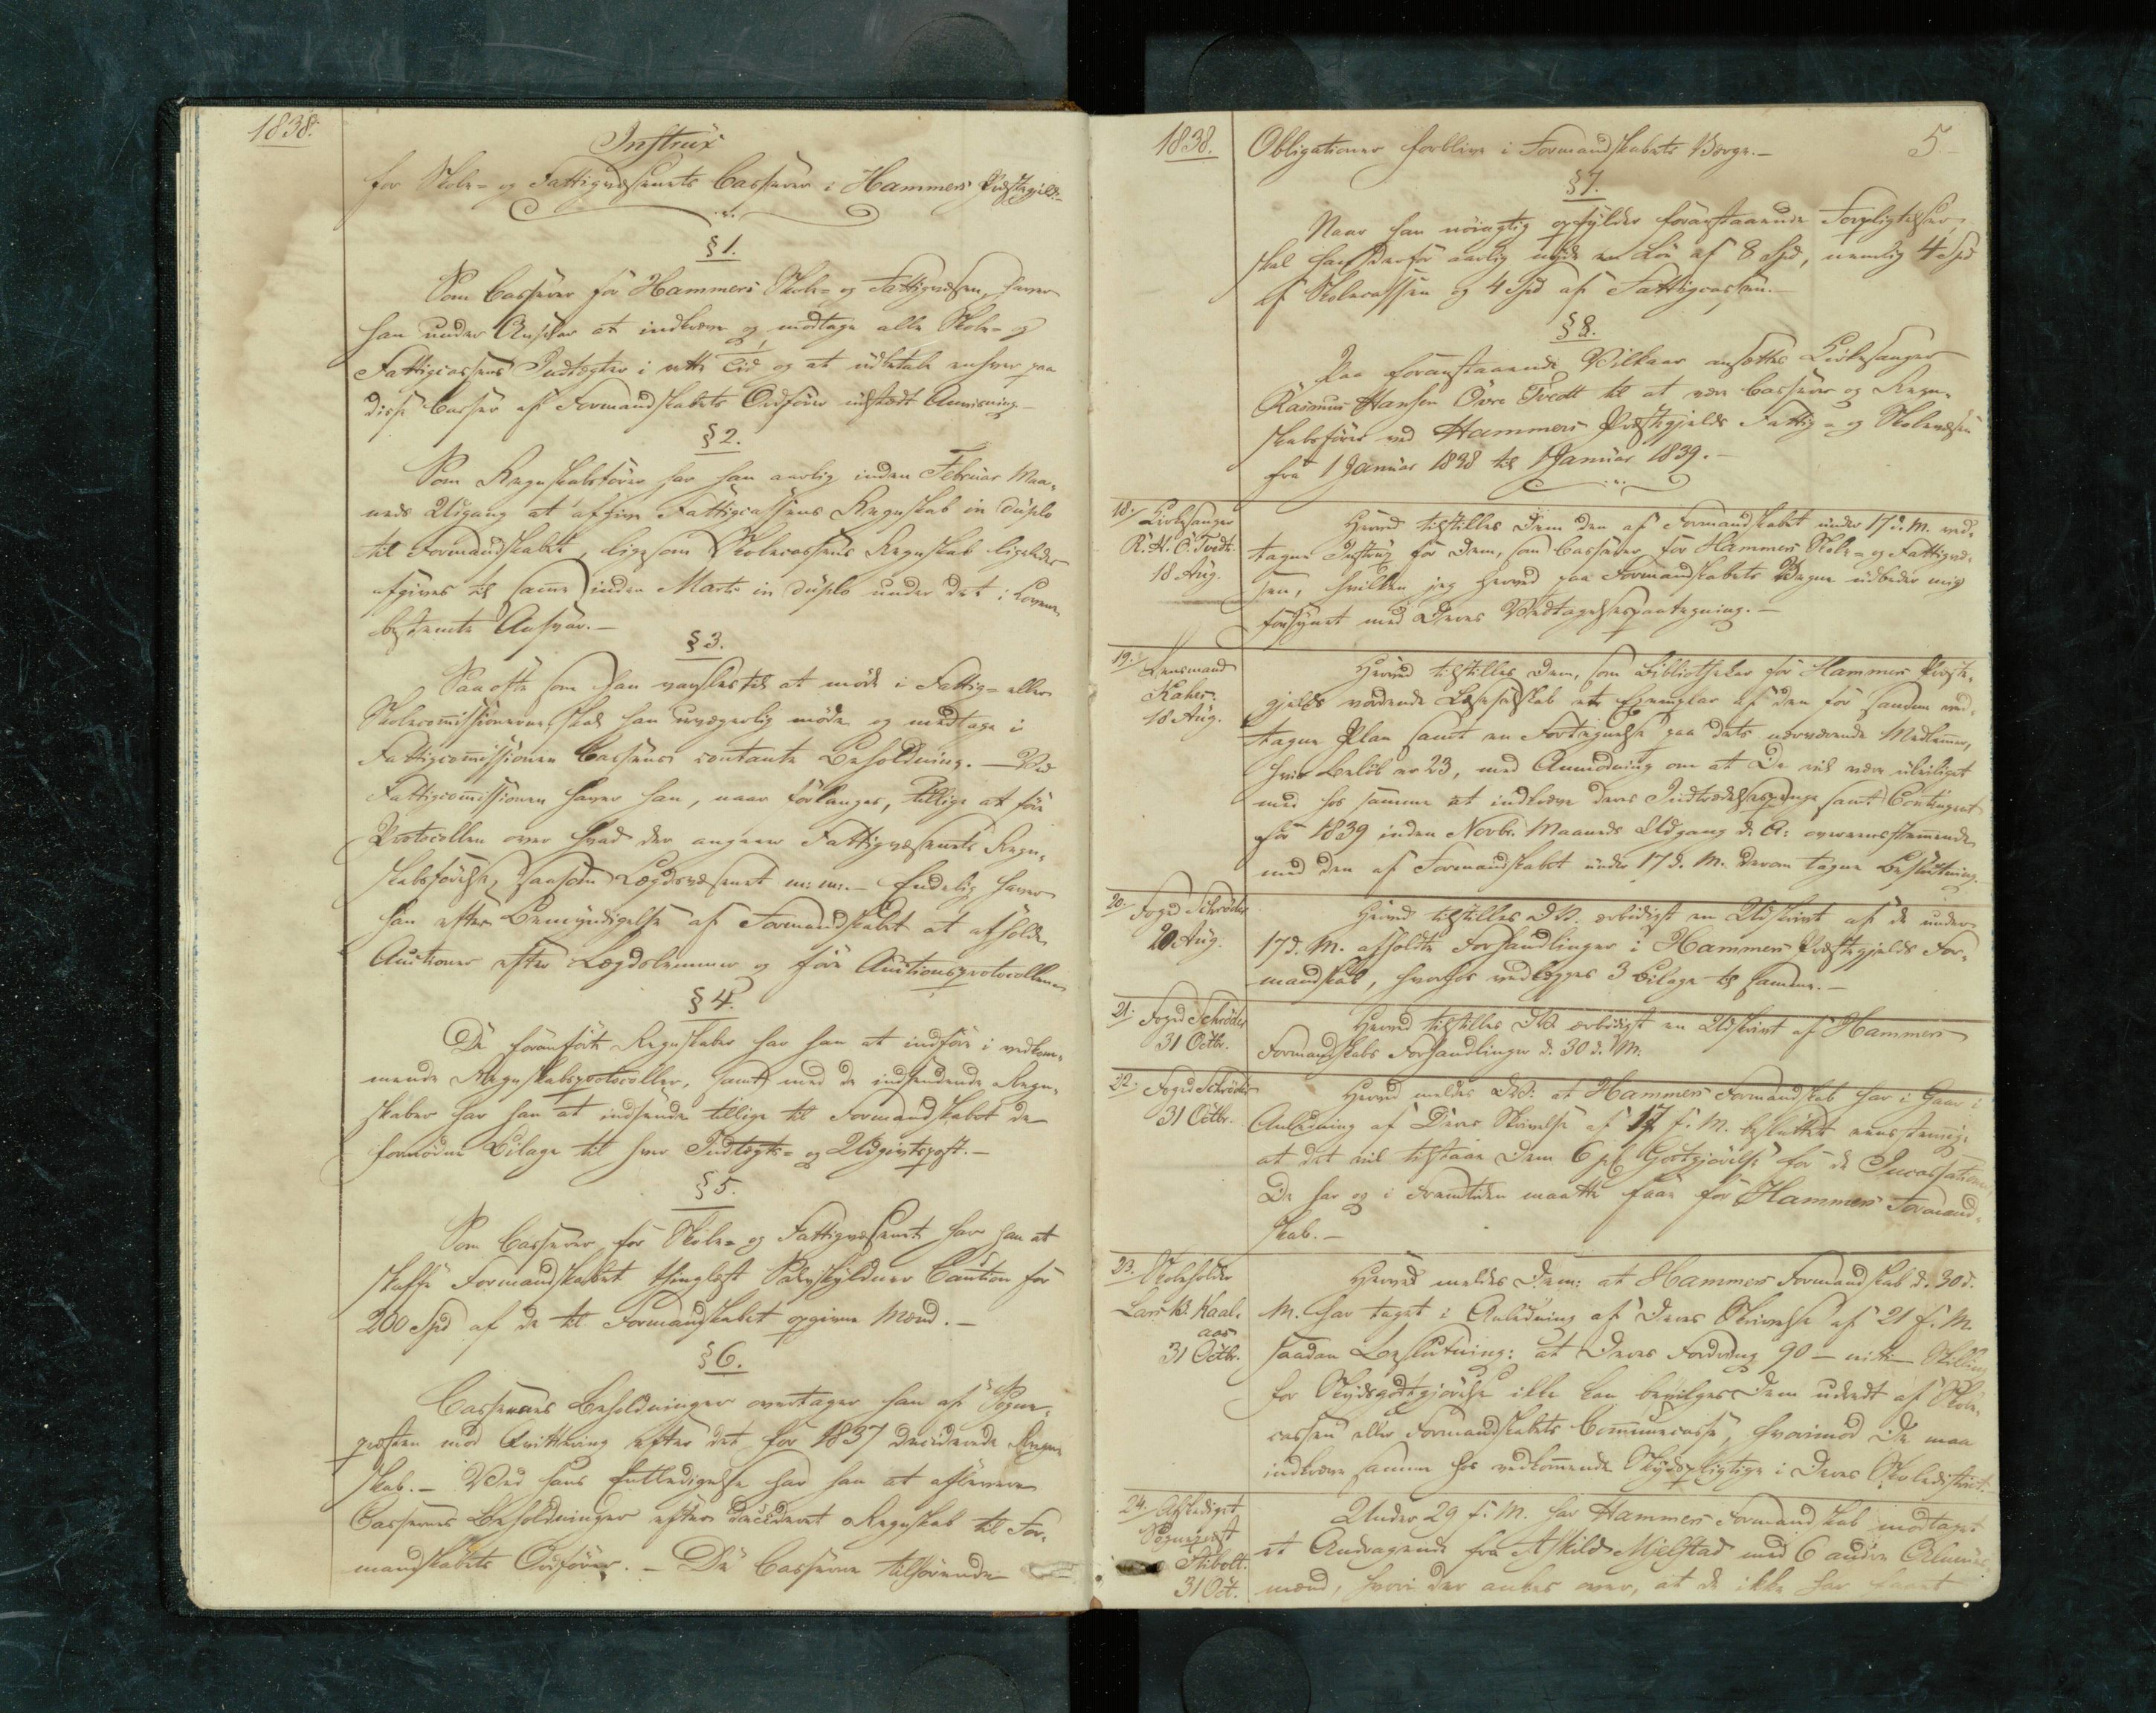 1838.
Instrux
for Skole- og Fattigvæsenets Casserer i Hammers Præstegjeld.-
§ 1.
Som Casserer for Hammers Skole- og Fattigvæsen, haver
han under Ansvar at indkræve og modtage alle Skole- og
Fattigcassens Indtægter i rette Tid og at udbetale enhver paa
disse Casser af Formandskabets Ordfører udstædt Anvisning.-
§ 2.
Som Regnskabsfører har han aarlig inden Februar Maa-
neds Udgang at afgive Fattigcassens Regnskab in duplo
til Formandskabet, ligesom Skolecassens Regnskab ligeledes
afgives til samme inden Marts in duplo under det i Loven
bestemte Ansvar.-
§ 3.
Saa ofte som han varsles til at møde i Fattig- eller
Skolecommissionerne, skal han uvægerlig møde og medtage i
Fattigcommissionen Cassens contante Beholdning. - Ved
Fattigcommissionen haver han, naar forlanges, tillige at føre
Protocollen over hvad der angaaer Fattigvæsenets Regn-
skabsførelse, saasom Lægdevæsenet m: m:.- Endelig haver
han efter Bemyndigelse af Formandskabet at afholde
Auctioner efter Lægdslemmer og føre Auctionsprotocollen.
§ 4.
De foranførte Regnskaber har han at indføre i vedkom-
mende Regnskabsprotocoller, samt med de indsendende Regn-
skaber har han at indsende tillige til Formandskabet de
fornødne Bilage til hver Indtægts- og Udgivtspost.-
§ 5.
Som Casserer for Skole- og Fattigvæsenet har han at
skaffe Formandskabet thinglæst Selvskyldner Caution for
200 Spd af de til Formandskabet opgivne Mænd.-
§ 6.
Cassernes Beholdninger overtager han af Sogne-
præsten mod Qvittering efter det for 1837 deciderede Regn-
skab.- Ved hans Entledigelse har han at aflevere
Cassernes Beholdninger efter decideret Regnskab til For-
mandskabets Ordfører.- De Casserne tilhørende
1838.
Obligationer forblive i Formandskabets Værge.-
5.-
§ 7.
Naar han nöiagtig opfylder foranstaaende Forpligtelser,
skal han derfor aarlig nyde en Løn af 8 Spd, nemlig 4 Spd
af Skolecassen og 4 Spd af Fattigcassen.-
§ 8.
Paa foranstaaende Vilkaar ansættes Kirkesanger
Rasmus Hansen Övre Tvedt til at være Casserer og Regn-
skabsfører ved Hammers Præstegjelds Fattig- og Skolevæsen
fra 1 Januar 1838 til 1 Januar 1839.-
18./ Kirkesanger
R. H. Ö. Tvedt.
18 Aug.
Herved tilstilles Dem den af Formandskabet under 17 d. M. ved-
tagne Instrux for Dem, som Casserer for Hammers Skole- og Fattigvæ-
sen, hvilken jeg herved paa Formandskabets Vegne udbeder mig
forsynet med Deres Vedtagelsespaategning.-
19./ Lensmand
Kahrs.
18 Aug.
Herved tilstilles Dem, som Bibliothekar for Hammers Præste-
gjelds vordende Læseselskab et Exemplar af den for samme ved-
tagne Plan samt en Fortegnelse paa dets nærværende Medlemmer,
hvis Beløb er 23, med Anmodning om at De vil være uleiliget
med hos samme at indkræve deres Indtrædelsespenge samt Contingent
for 1839 inden Novbr. Maaneds Udgang d. A: overeensstemmende
med den af Formandskabet under 17 d. M. derom tagne Beslutning.
20. Foged Schröder
20. Aug.
Herved tilstilles DH. ærbödigst en Udskrivt af de under
17 d. M. afholdte Forhandlinger i Hammers Præstegjelds For-
mandskab, hvorhos vedlægges 3 Bilage til samme.-
21. Foged Schröder
31 Octbr.
Herved tilstilles DH ærbödigst en Udskrivt af Hammers
Formandskabs Forhandlinger d. 30 d. M.
22. Foged Schröder
31 Octbr.
Herved meldes DH: at Hammers Formandskab har i Gaar i
Anledning af Deres Skrivelse af 17 f. M. besluttet eensstemmig
at det vil tilstaae Dem 6 pC. Godtgjörelse for de Incassationer
De har og i Fremtiden maatte faae for Hammers Formand-
skab.-
23. Skoleholder
Lars H. Kaal-
aas
31 Octbr.
Herved meldes Dem: at Hammers Formandskab d. 30 d.
M. har taget i Anledning af Deres Skrivelse af 21 f. M.
saadan Beslutning: at Deres Fordring 90 - nitti - Skilling
for Skydsgodtgjörelse ikke kan bevilges Dem udredt af Skole-
cassen eller Formandskabets Communecasse, hvorimod De maa
indkræve samme hos vedkommende Skydspligtige i Deres Skoledistrict.
24. Afskediget
Sognepræst
Stibolt.
31 Oct.
Under 29 f. M. har Hammers Formandskab modtaget
et Andragende fra Askild Mjelstad med 6 andre Almues-
mænd, hvori der ankes over, at de ikke har faaet